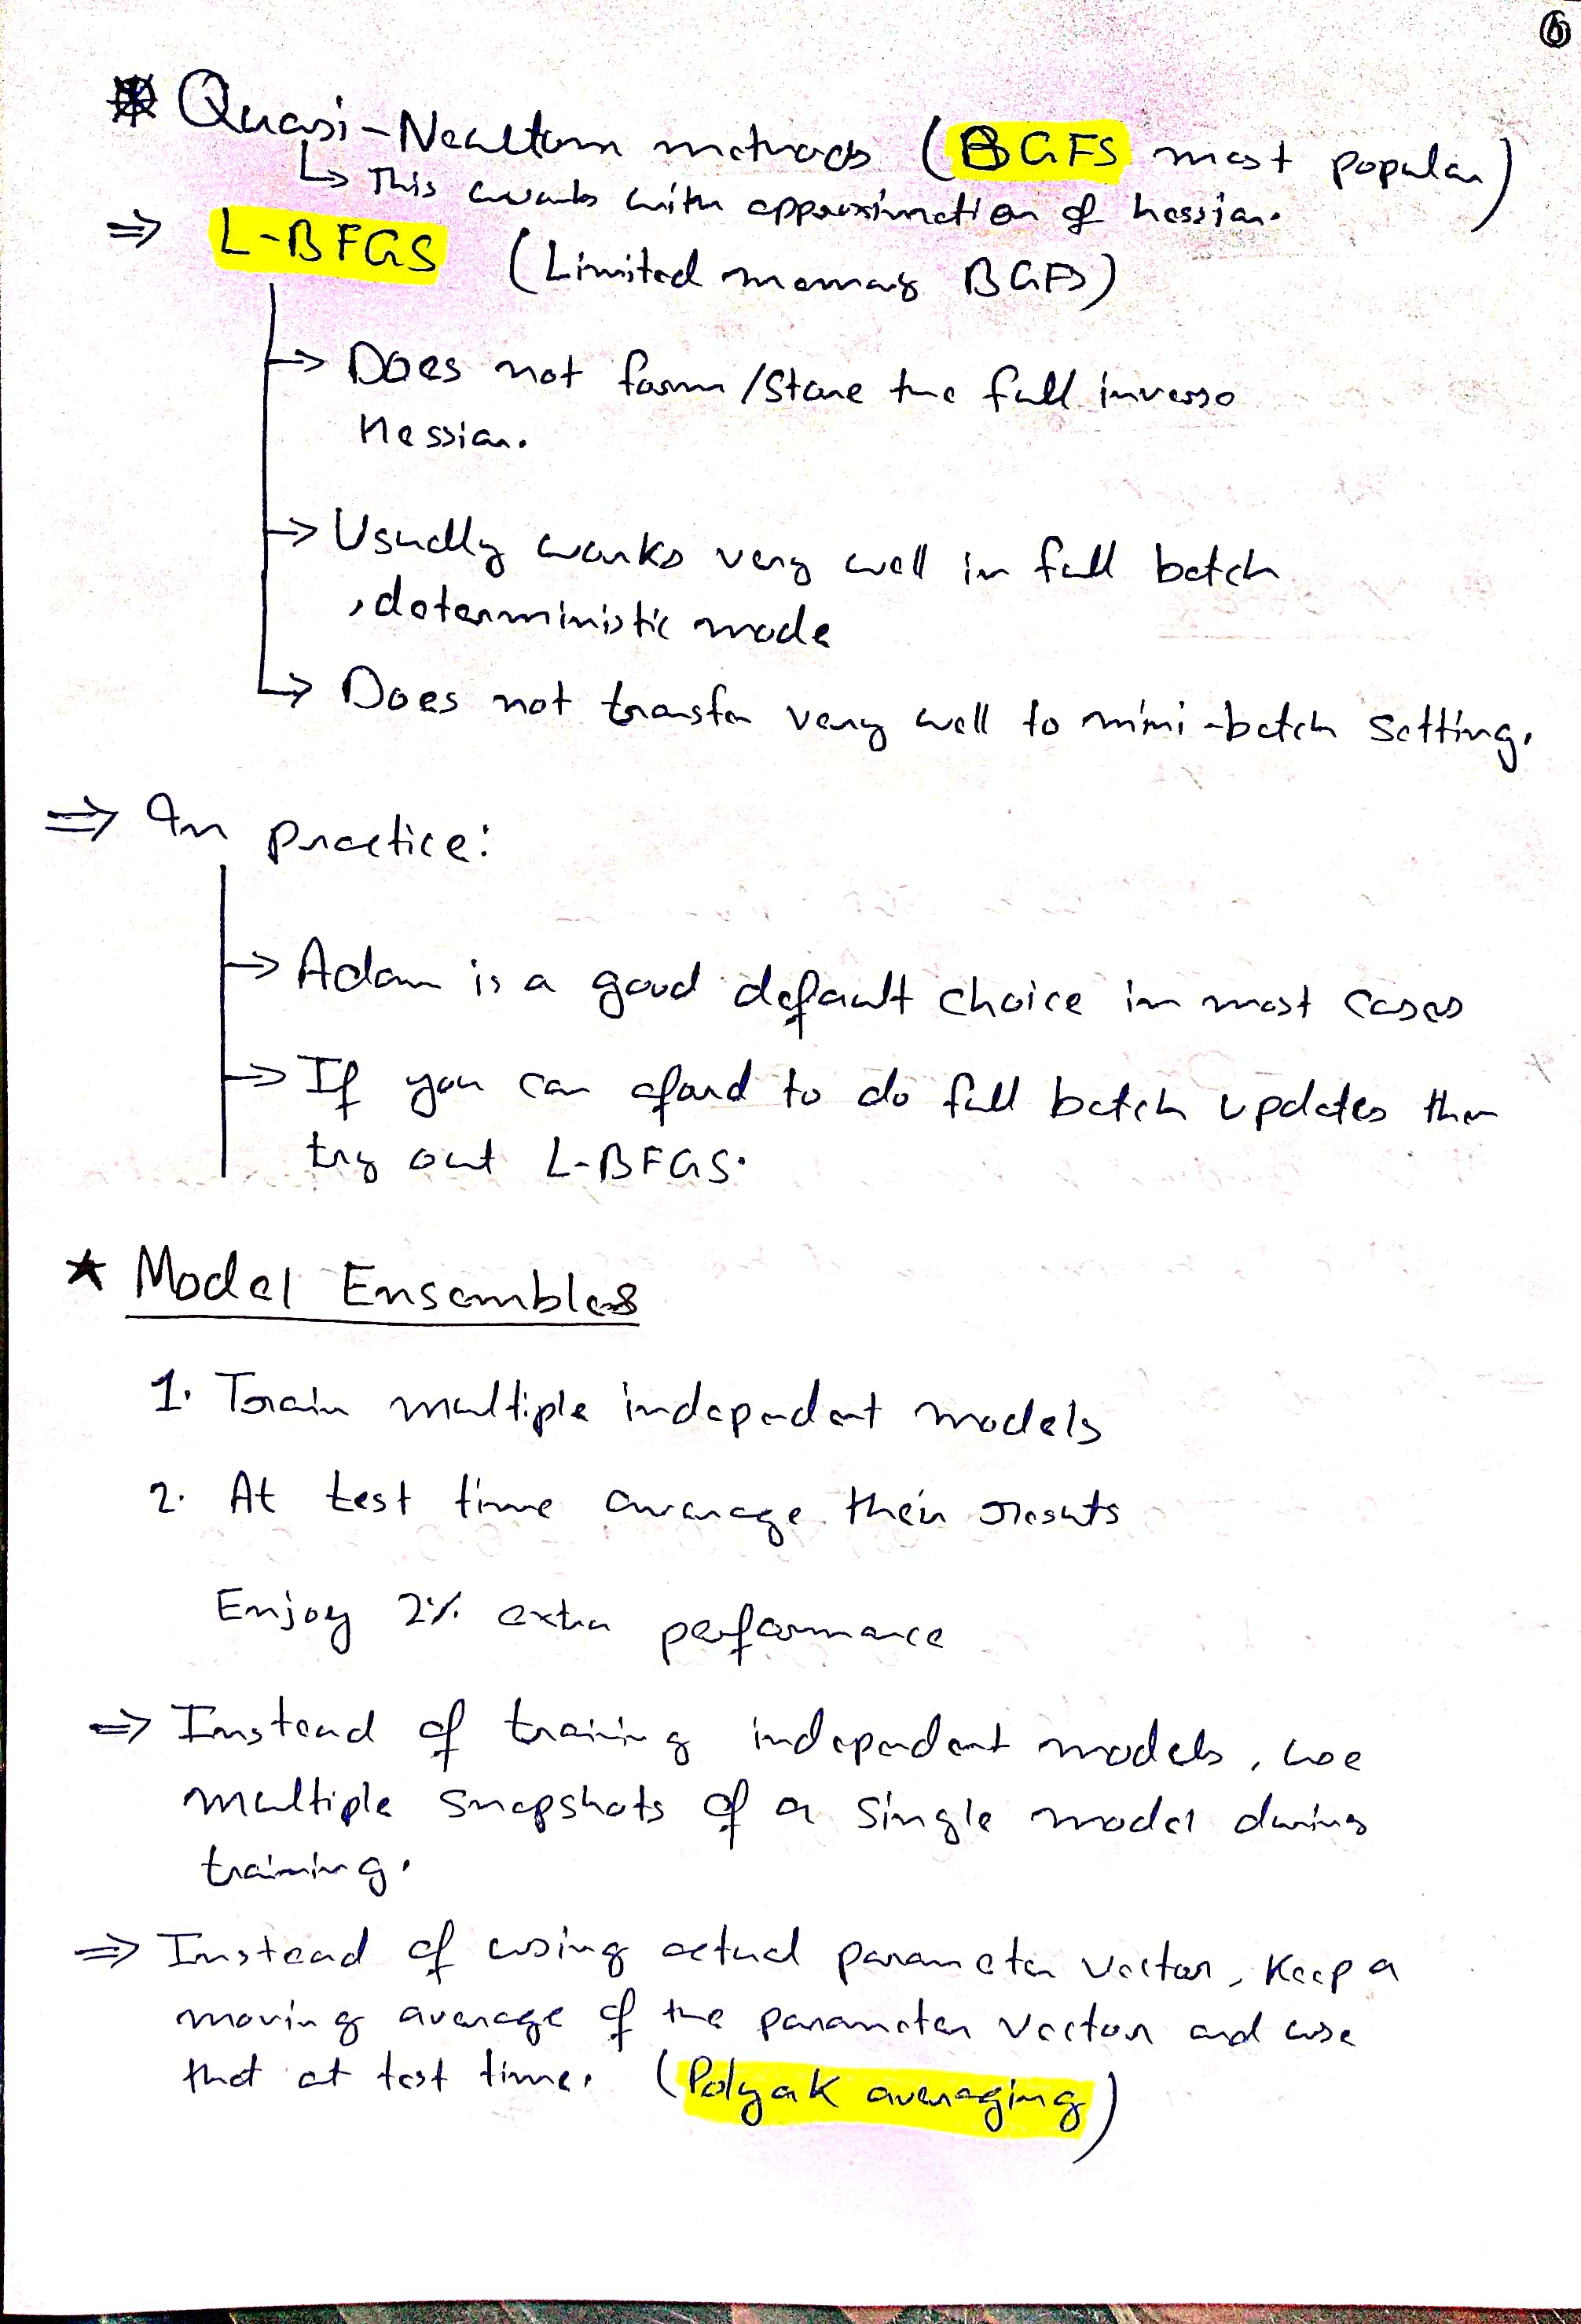 ⑥
* Quasi-Newton methods (BGFS most popular)
↳ This works with approximation of hessian.
⇒ L-BFGS (Limited memory BGFS)
→ Does not form/store the full inverse
Hessian.
→ Usually works very well in full batch
, deterministic mode
↳ Does not transfer very well to mini-batch setting.
⇒ In practice:
→ Adam is a good default choice in most cases
→ If you can aford to do full batch updates then
try out L-BFGS.
* Model Ensembles
1. Train multiple independent models
2. At test time average their results
Enjoy 2% extra performance
⇒ Instead of training independent models, use
multiple snapshots of a single model during
training.
⇒ Instead of using actual parameter vector, keep a
moving average of the parameter vector and use
that at test time. (Polyak averaging)